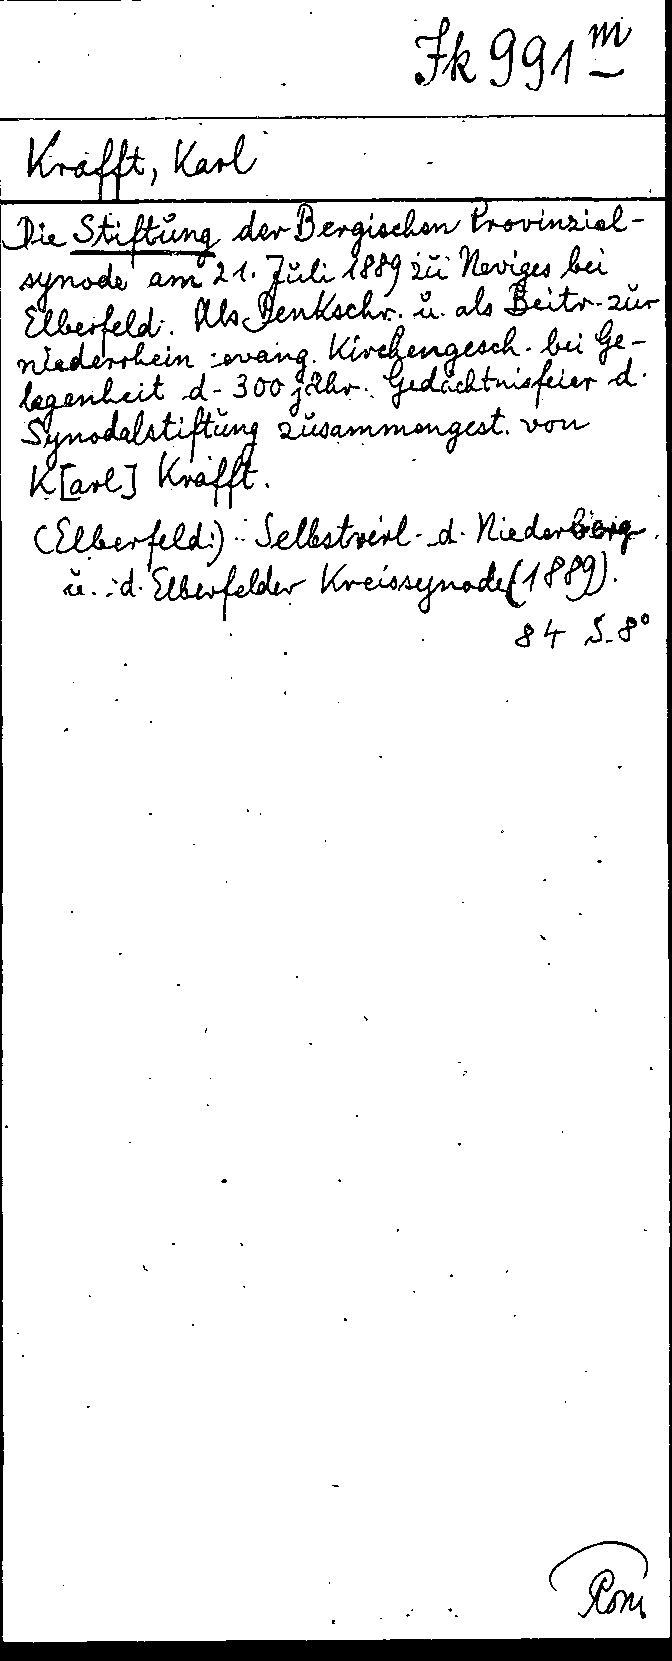 Jk 991 m
Krafft, Karl
Die Stiftung der Bergischen Provinzial-
synode am 21. Juli 1889 zu Neviges bei
Elberfeld. Als Denkschr. u. als Beitr. zur
niederrhein. evang. Kirchengesch. bei Ge-
legenheit d. 300 jähr. Gedächtnisfeier d.
Synodalstiftung zusammengest. von
K[arl] Krafft.
(Elberfeld:) Selbstverl. d. Niederberg.
u. d. Elberfelder Kreissynode (1889).
84 S. 8°